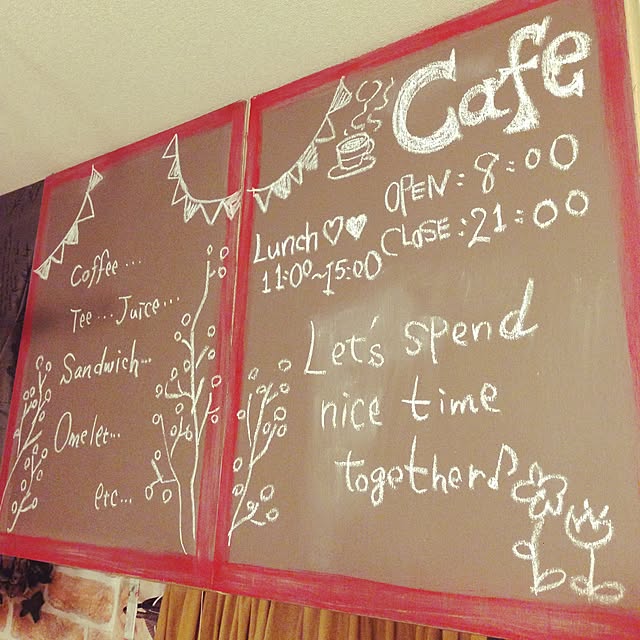 Coffee...
Tee... Juice...
Sandwich...
Omelet...
etc...
Cafe
OPEN: 8:00
CLOSE: 21:00
Lunch♡♥
11:00~15:00
Let's spend
nice time
together♪